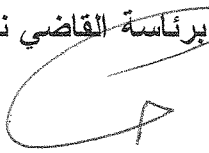 برئاسة القاضي